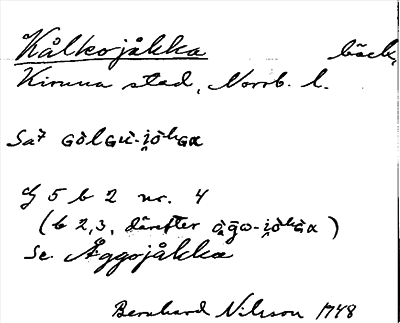 Kålkojåkka bäck,
Kiruna stad, Norrb. l.
Sa7 GòlGu-i̯òkGa
J 5 b 2 nr. 4
(b 2, 3, därefter
Se Äggojåkka
Bernhard Nilsson 1748